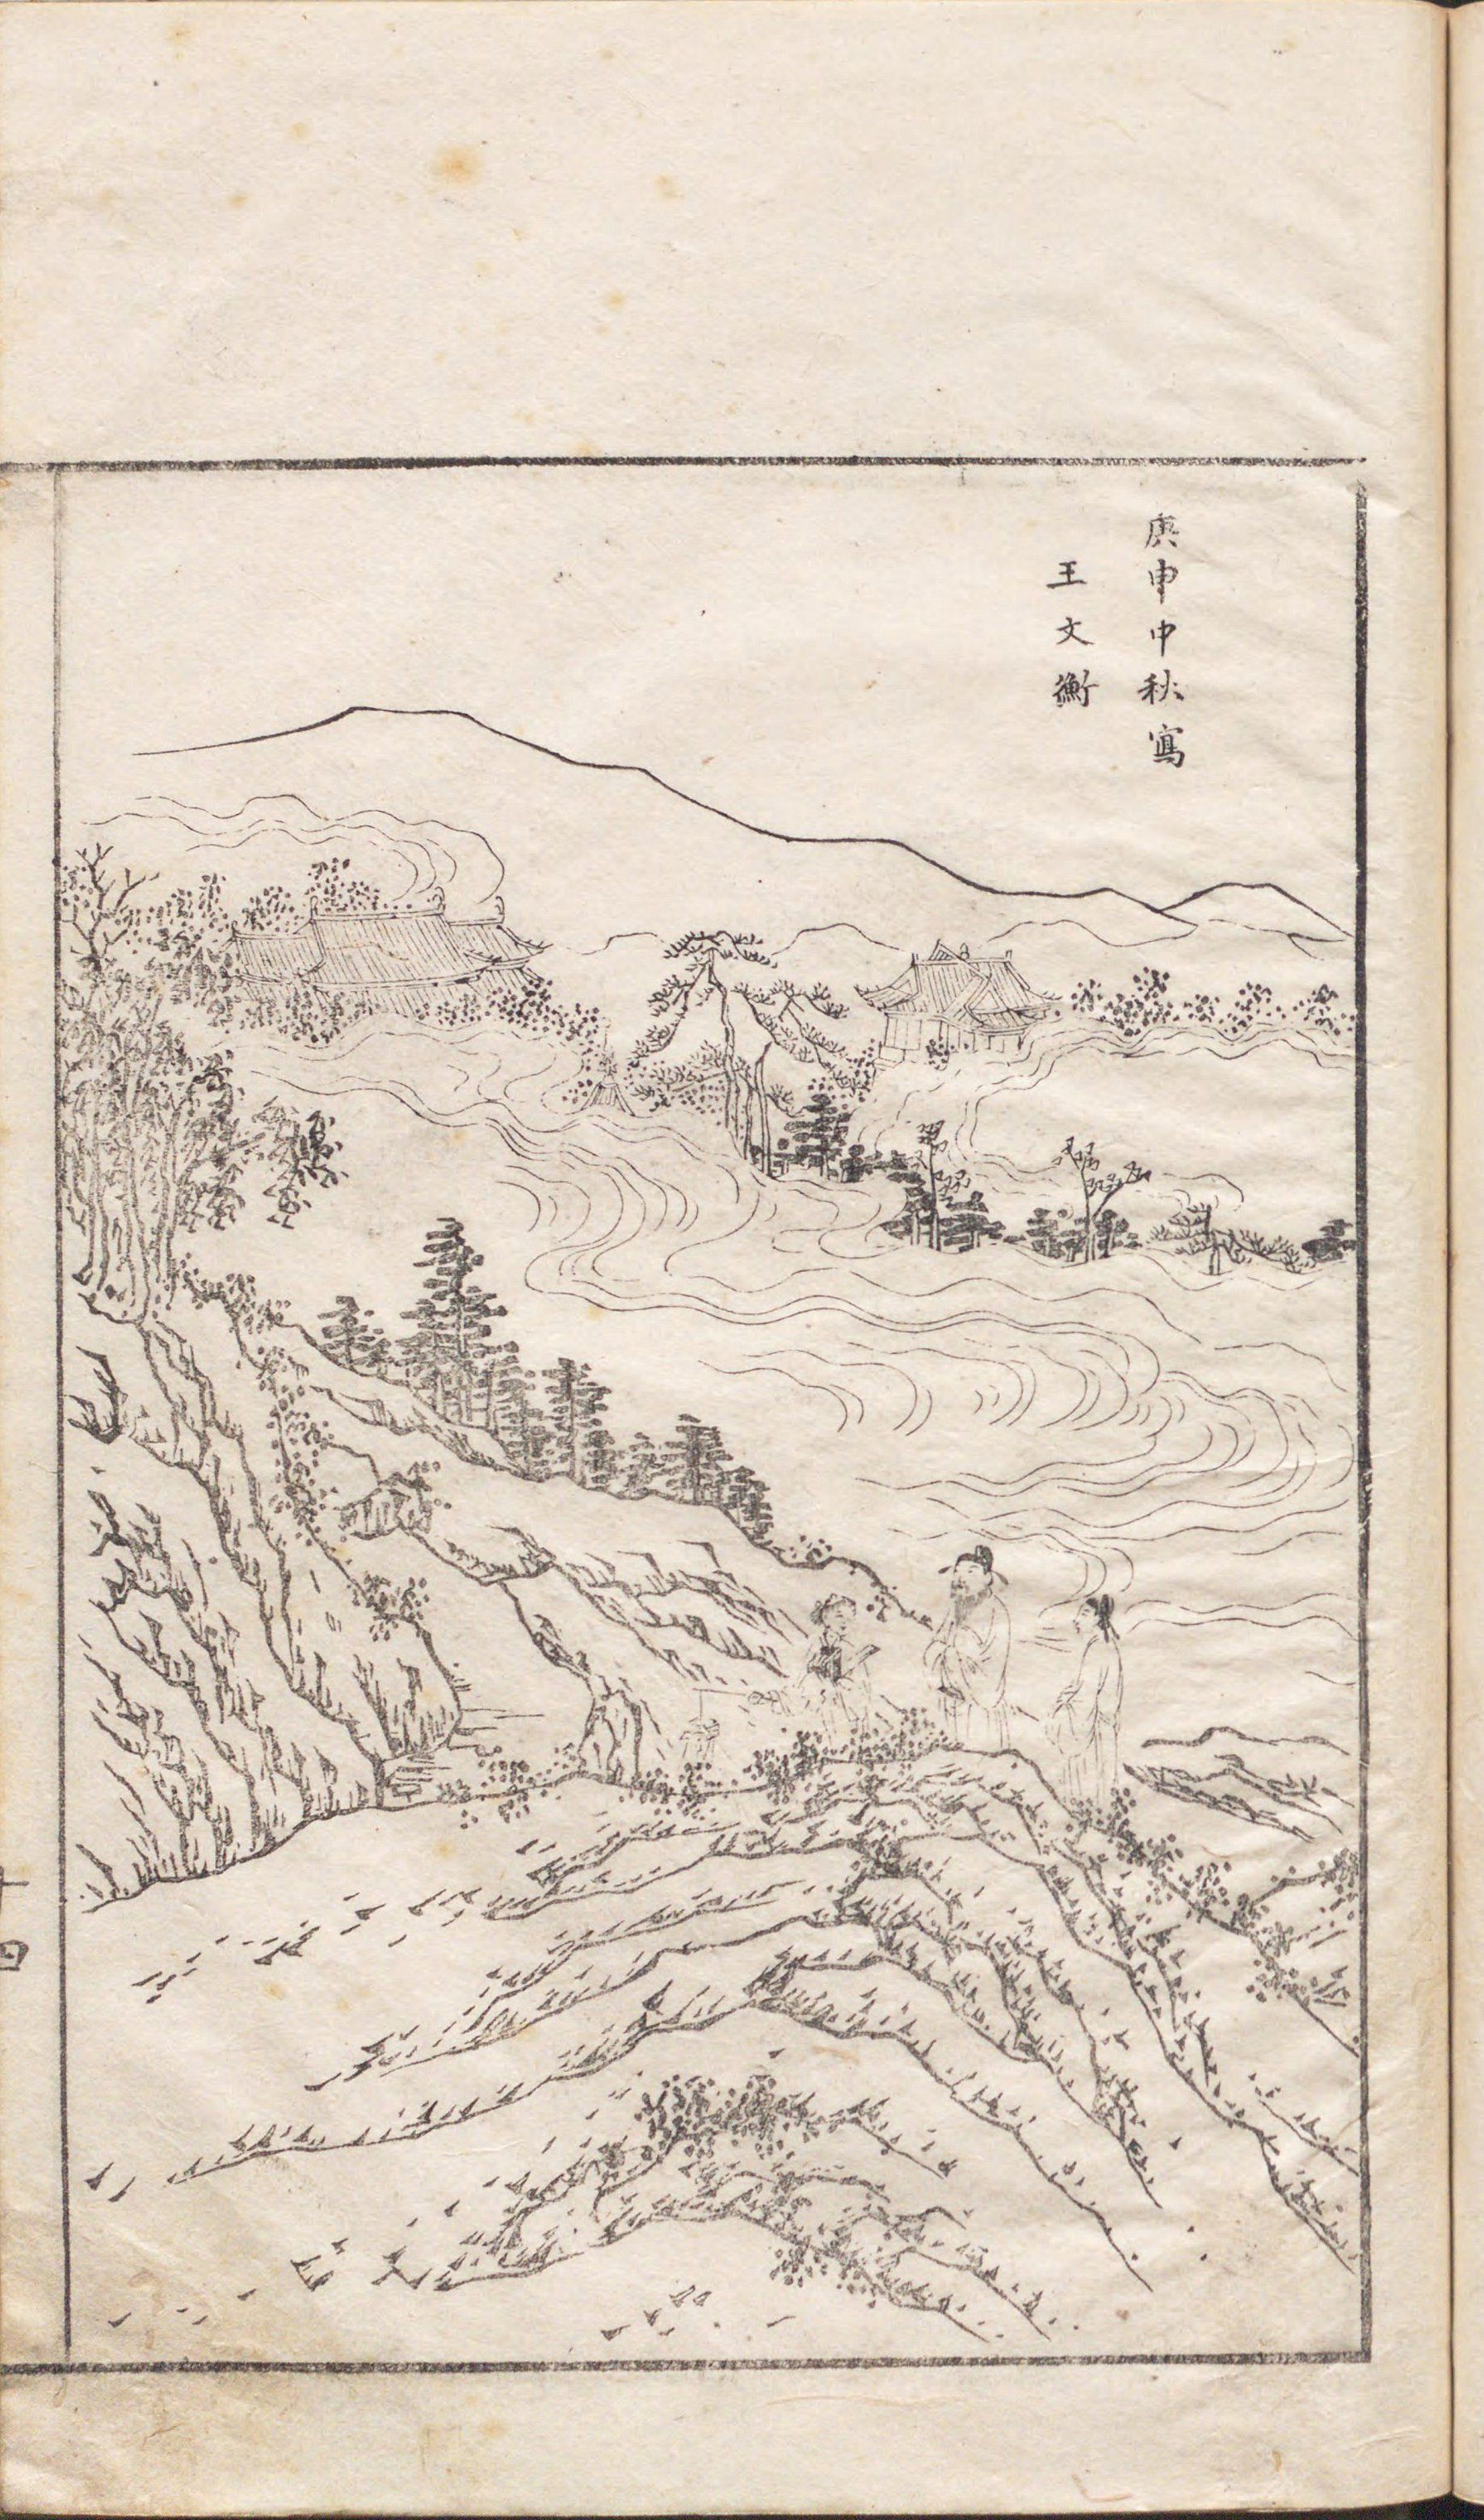 庚申中秋寫
王文衡
十四